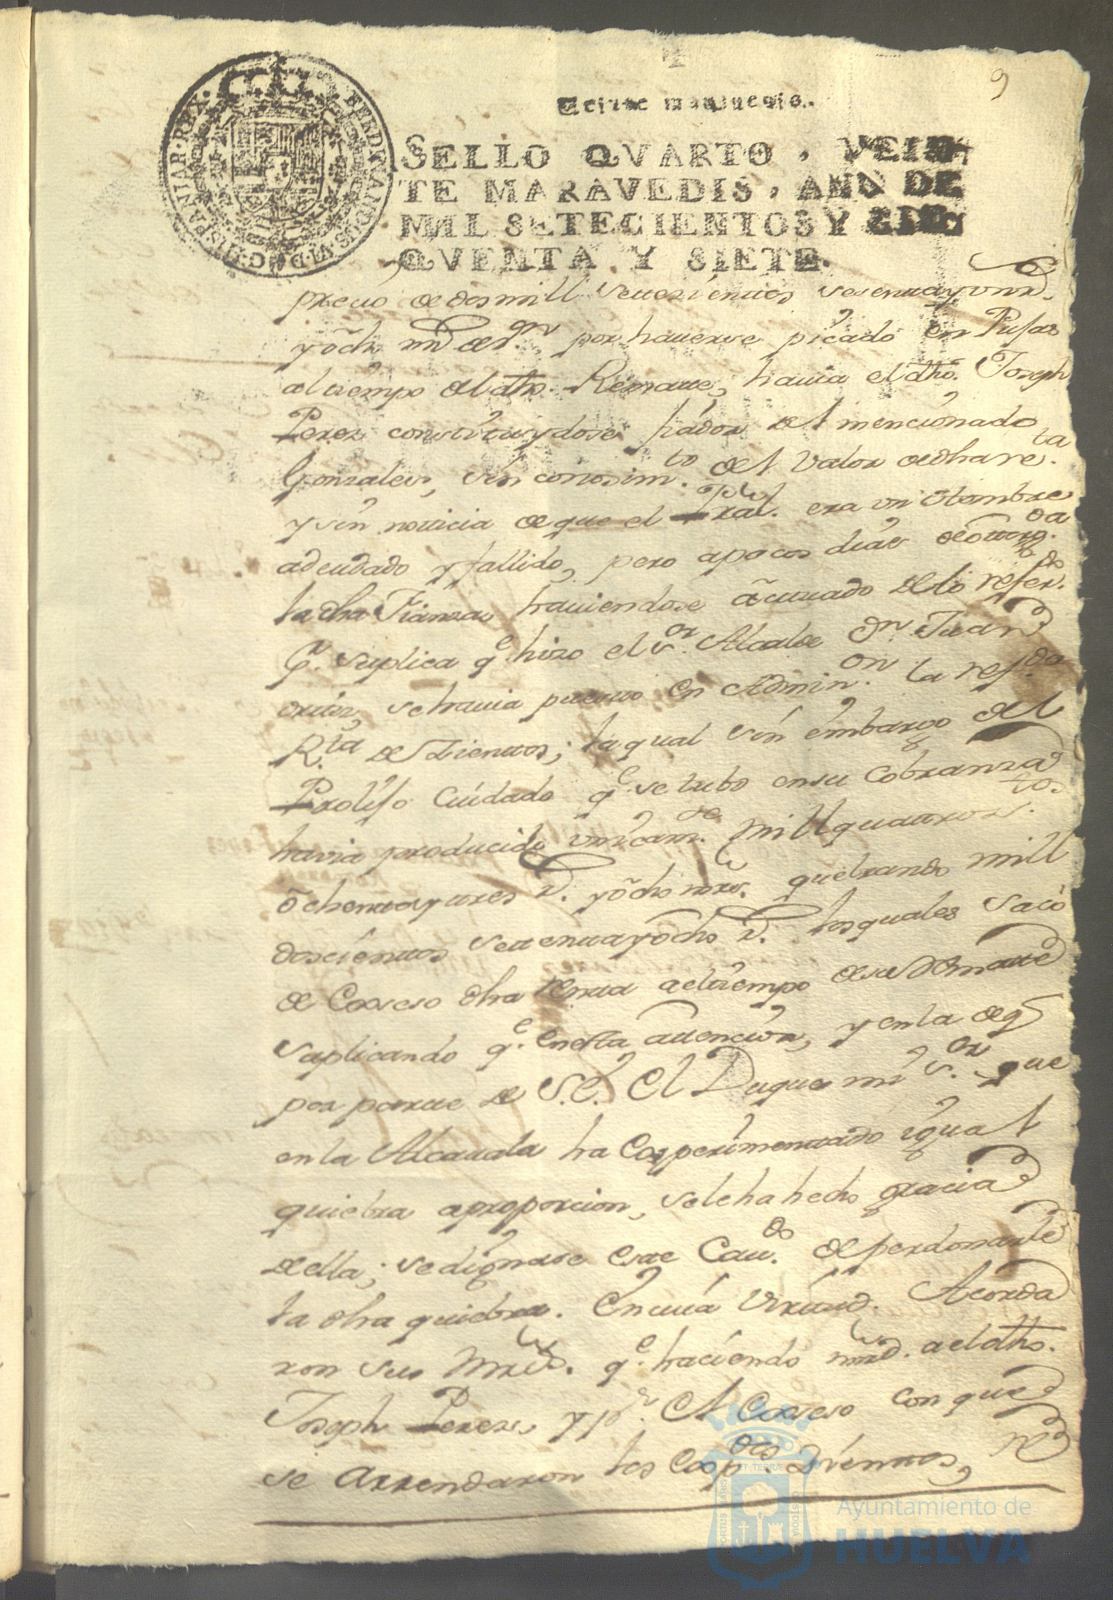 9
Veinte maravedis.
SELLO QVARTO, VEIN-
TE MARAVEDIS, AÑO DE
MIL SETECIENTOS Y CIN-
QVENTA Y SIETE.
FERDINANDUS VI D G HISPANIAR REX
precio de dos mill setezientos sesenta y un r.^s
y ocho mrs de v.^on por haverse picado en Pujas
al tiempo del dho. Remate, havia el dho. Joseph
Perez constituydose fiador del mencionado
Gonzales, sin conosim.^to del valor de dha ren.^ta
y sin noticia de que el Pral. era un Hombre
adeudado y fallido, pero a pocos dias de otorg.^da
la dha Fianza haviendose actuado de lo refer.^do
p.^r suplica q.^e hizo el s.^or Alcalde D.^n Juan
ortiz, se havia puesto en Admin.^on la ref.^da
R.^ta de Vientos; la qual sin embargo del
Prolijo Cuidado q.^e se tubo en su Cobranza
havia producido unicam.^te mill quatroz.^tos
ochenta y tres r.^s y ocho mrs. quebrando mill
doscientos setenta y ocho r.^s los quales sacó
de Exseso dha renta a el tiempo de su Remate
suplicando q.^e en esta attencion, y en la de q.^e
por parte de S.E. El Duque mi S.^or que
en la Alcavala ha Experimentado igual
quiebra a proporcion, se le ha hecho gracia
de ella; se dignase este Cav.^do de perdonarle
la dha quiebra. En cuia virtud. Acorda
ron sus mrds. q.^e haciendo mrd. a el dho.
Joseph Perez, y p.^r El Exseso con que
se Arrendaron los Exp.^dos Vientos, re
Ayuntamiento de
HUELVA